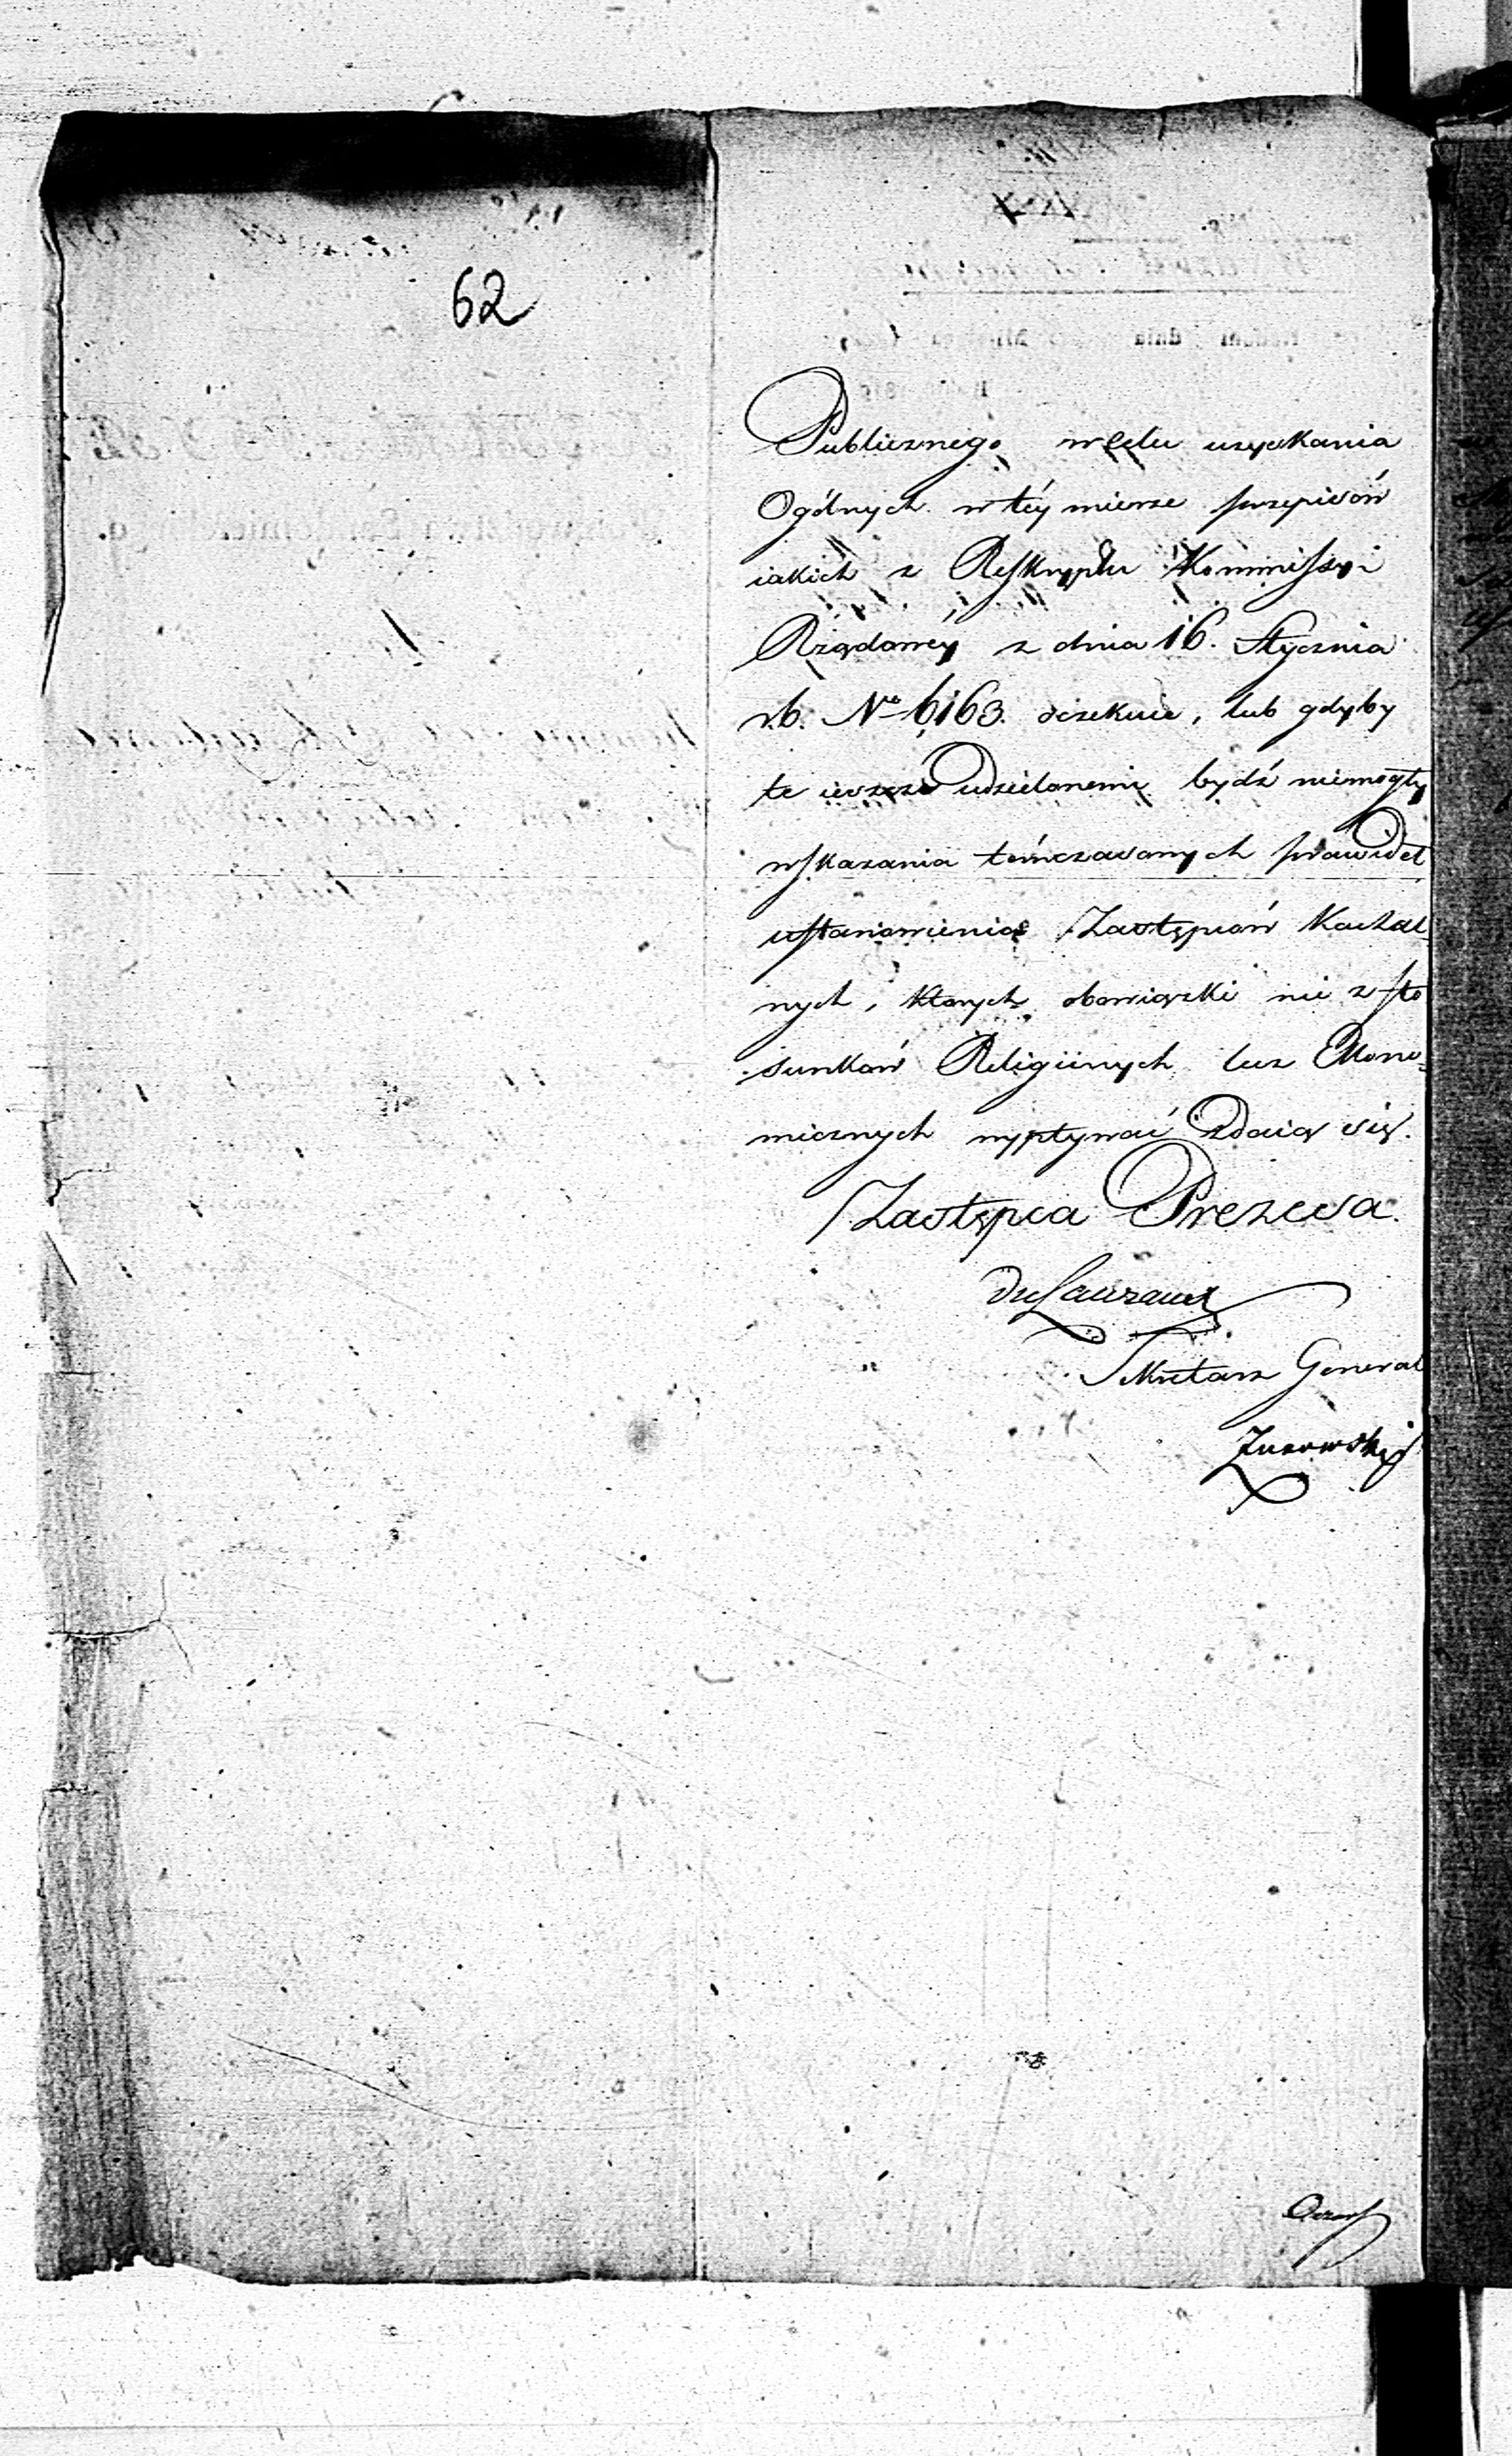 62
Publicznego w Celu uzyskania
Ogólnych w téy mierze przepisów
iakich z Reskryptu Kommissyi
Rządowéy z dnia 16. Stycznia
r.b. No 6163. oczekuie, lub gdyby
te ieszcze Udzielonemi bydź niemogły
wskazania tymczasowych prawideł
ustanowienia Zastępców Kachal-
nych, których obowiązki nie z sto
sunków Religiinych lecz Ekono-
micznych wypływać Zdaią się.
Zastępca Prezesa.
du Laurans
Sekretarz General
Żurowski